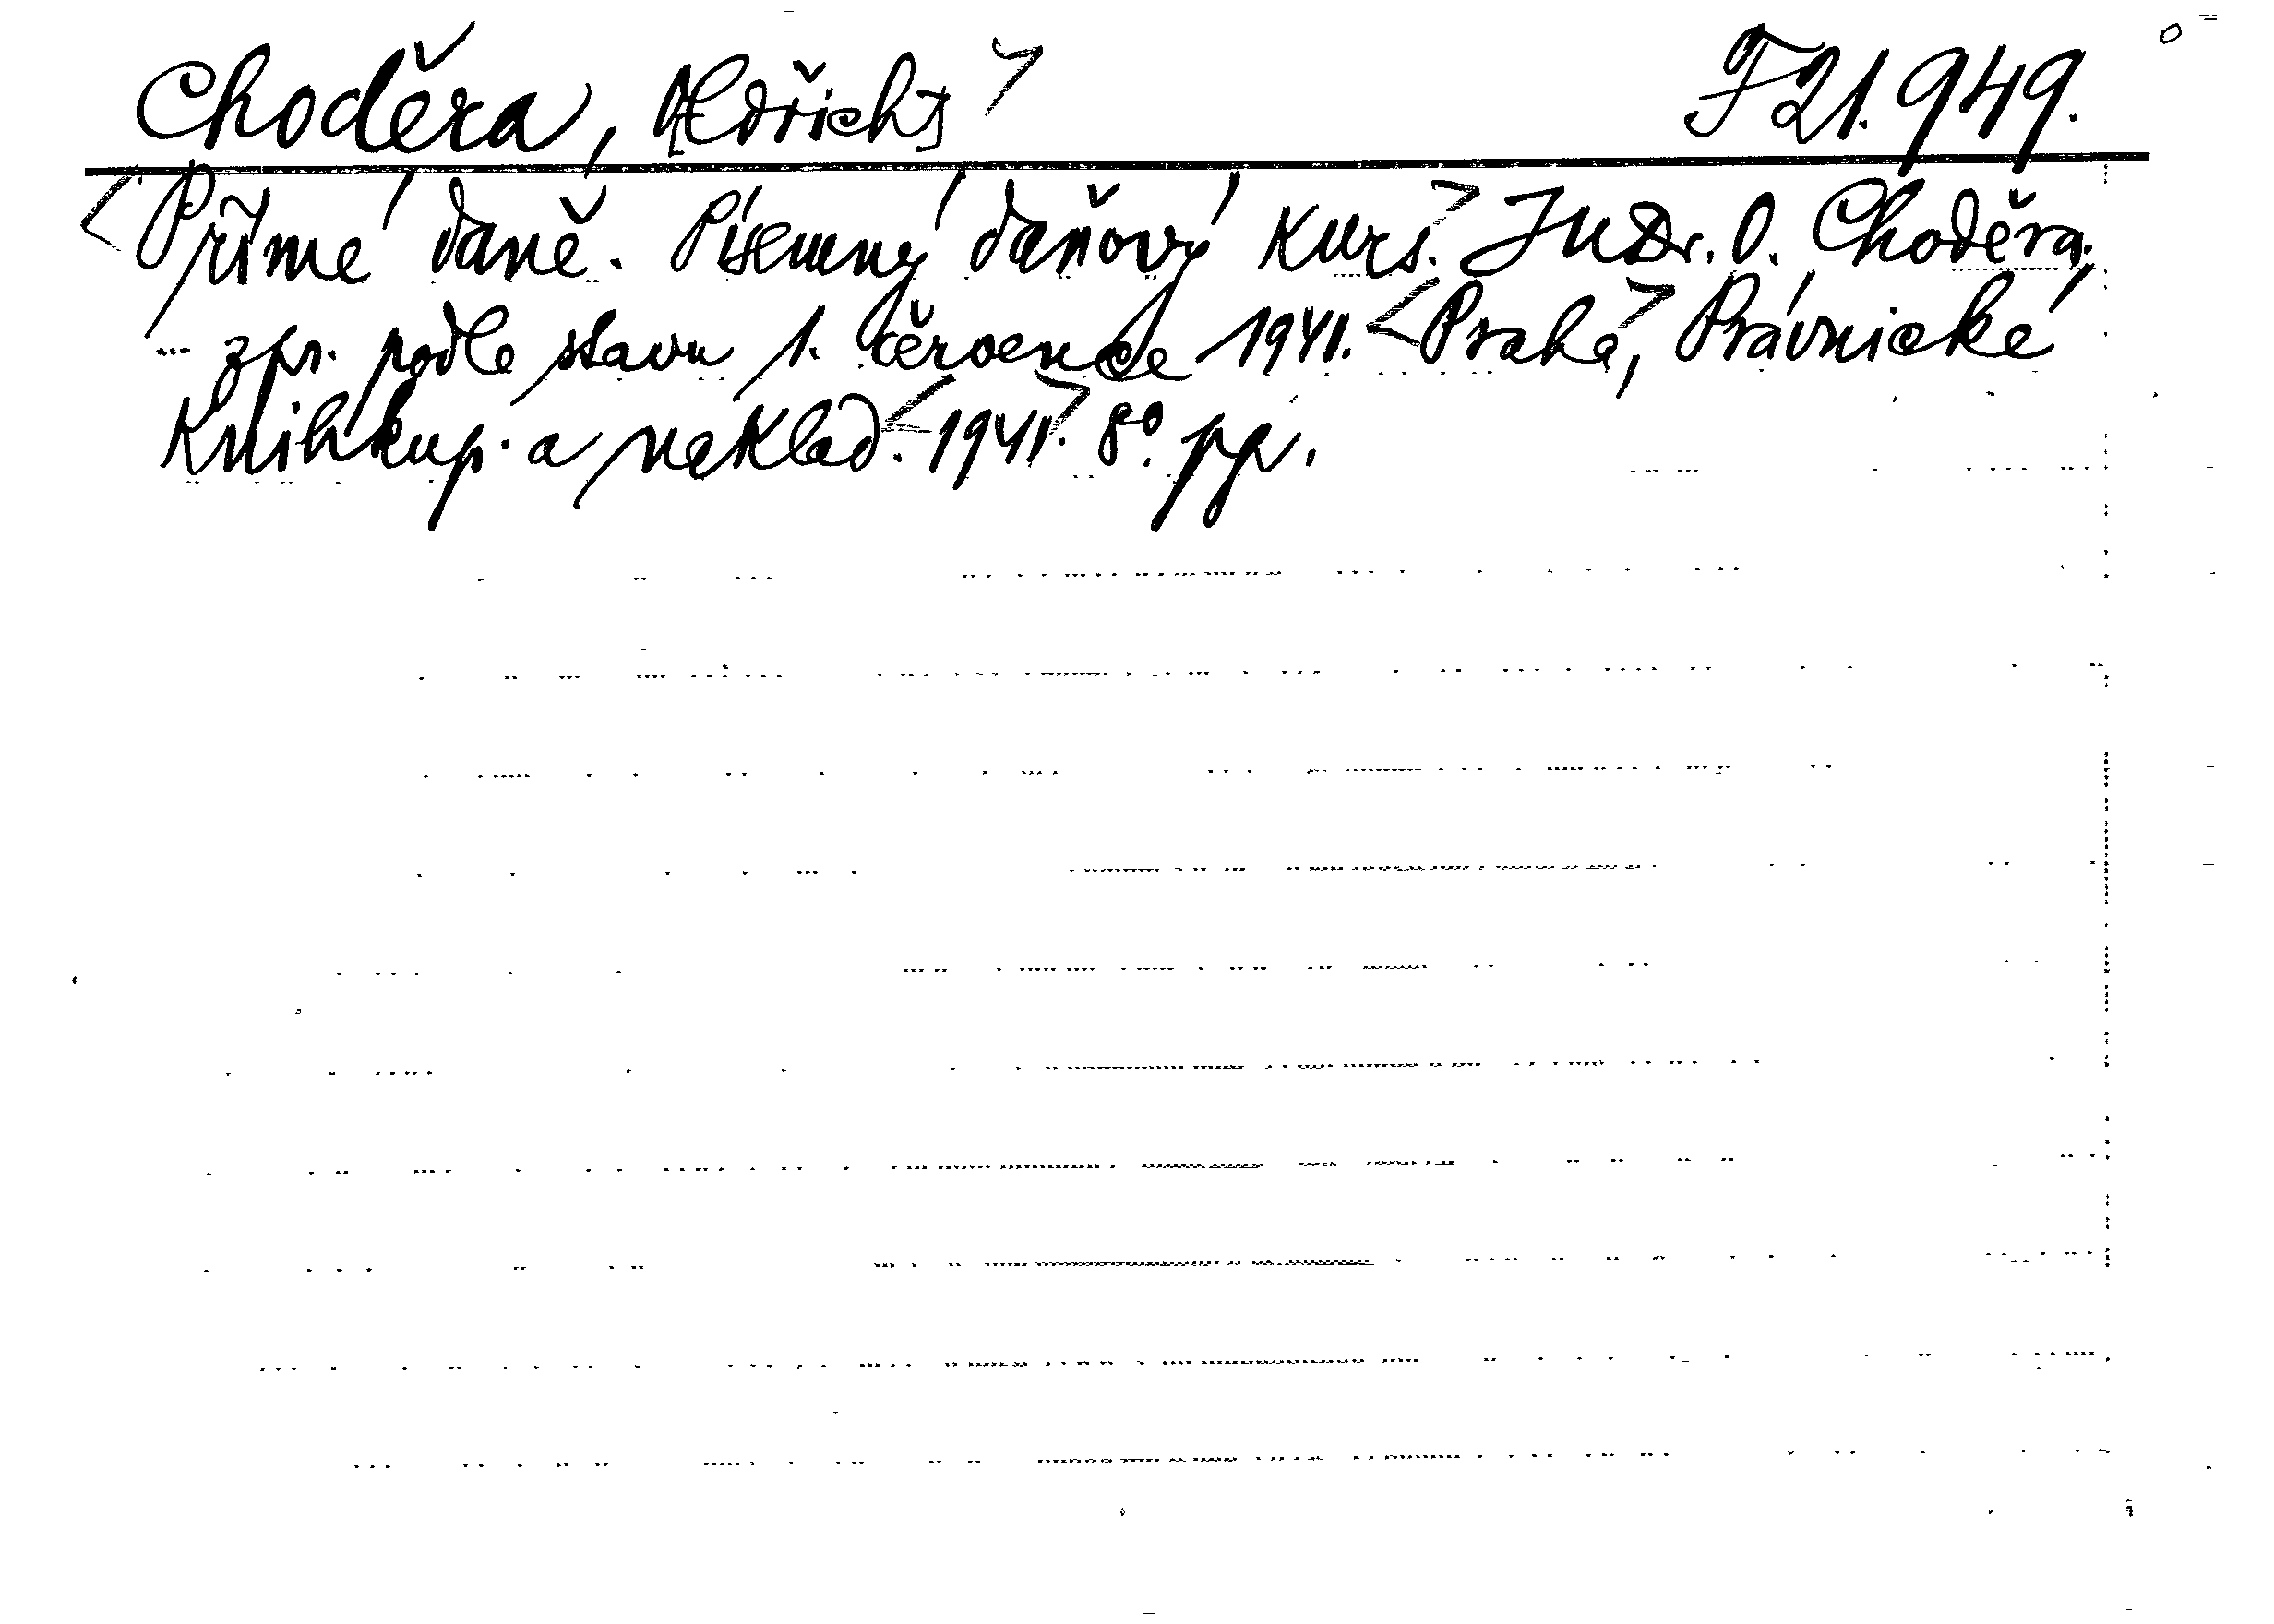 Choděra, [Oldřich] > F 21.949.
<Přímé daně. Písemný daňový kurs.> JUDr. O. Choděra,
... zpr. podle stavu 1. července 1941. <Praha>, Právnické
Knihkup. a naklad. <1941>. 8°. pp.